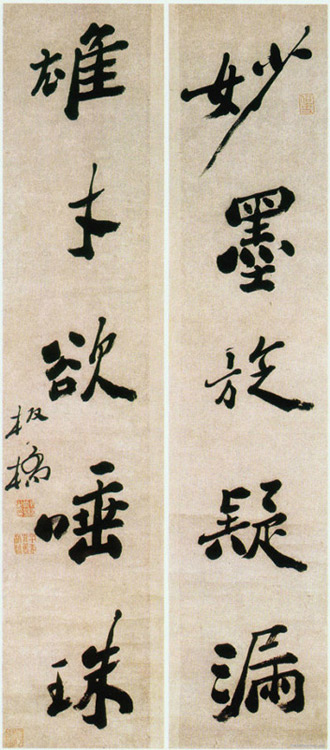 妙墨旋疑漏
雄才欲唾珠
板橋